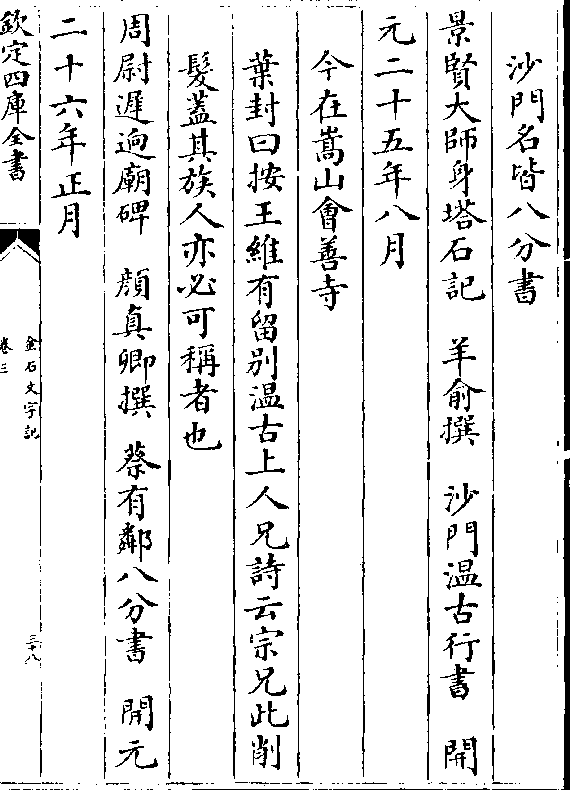 沙門名皆八分書
景賢大師身塔石記　羊俞撰　沙門温古行書　開
元二十五年八月
今在嵩山會善寺
葉封曰按王維有留别温古上人兄詩云宗兄此削
髮蓋其族人亦必可稱者也
周尉遲逈廟碑　顔真卿撰　蔡有鄰八分書　開元
二十六年正月
欽定四庫全書
金石文字記
卷三
三十八